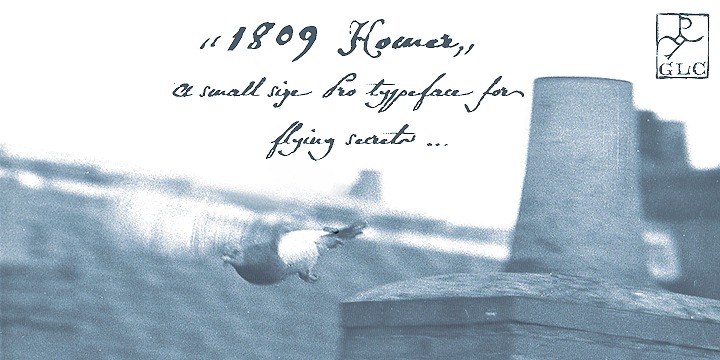 „1809 Homer„
A small size Pro typeface for
flying secrets ...
GLC